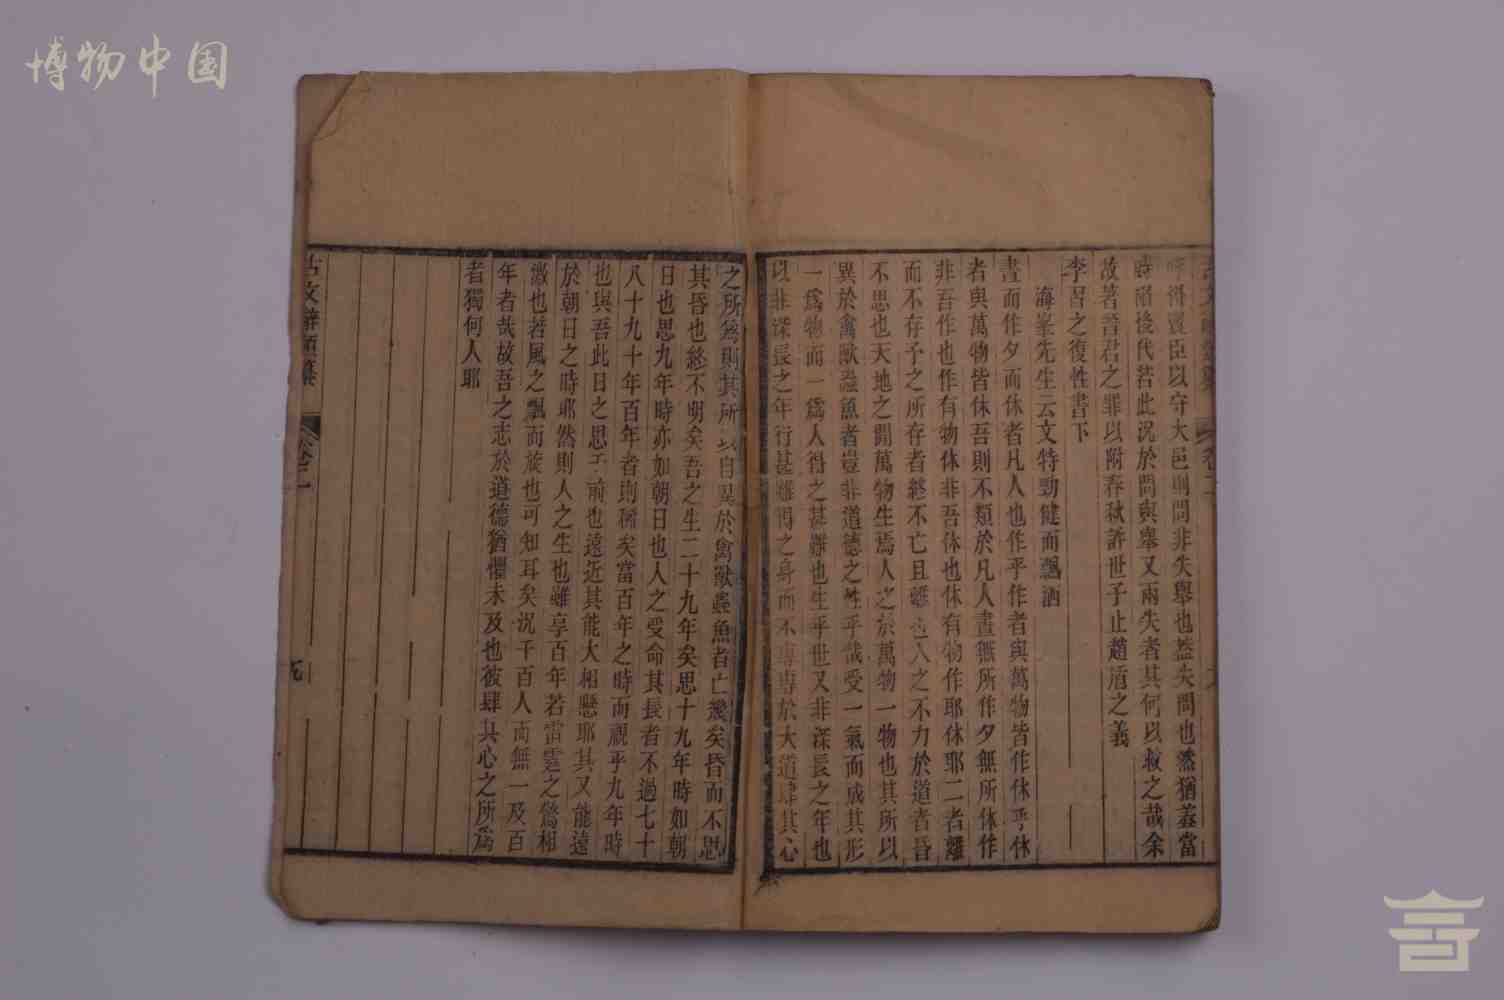 博物中国
古文辭類纂 卷二 九
呼得賢臣以守大邑則問非失舉也蓋失問也然猶羞當
時陷後代若此況於問與舉又兩失者其何以救之哉余
故著晉君之罪以附春秋許世子止趙盾之義
李習之復性書下
海峯先生云文特勁健而飄洒
晝而作夕而休者凡人也作乎作者與萬物皆作休乎休
者與萬物皆休吾則不類於凡人晝無所作夕無所休作
非吾作也作有物休非吾休也休有物作耶休耶二者離
而不存予之所存者終不亡且離也人之不力於道者昏
不思也天地之間萬物生焉人之於萬物一物也其所以
異於禽獸蟲魚者豈非道德之性乎哉受一氣而成其形
一爲物而一爲人得之甚難也生乎世又非深長之年也
以非深長之年行甚難得之身而不專專於大道肆其心
之所爲則其所以自異於禽獸蟲魚者亡幾矣昏而不思
其昏也終不明矣吾之生二十九年矣思十九年時如朝
日也思九年時亦如朝日也人之受命其長者不過七十
八十九十年百年者則稀矣當百年之時而視乎九年時
也與吾此日之思于前也遠近其能大相懸耶其又能遠
於朝日之時耶然則人之生也雖享百年若雷電之驚相
激也若風之飄而旋也可知耳矣況千百人而無一及百
年者哉故吾之志於道德猶懼未及也彼肆其心之所爲
者獨何人耶
古文辭類纂 卷二 九